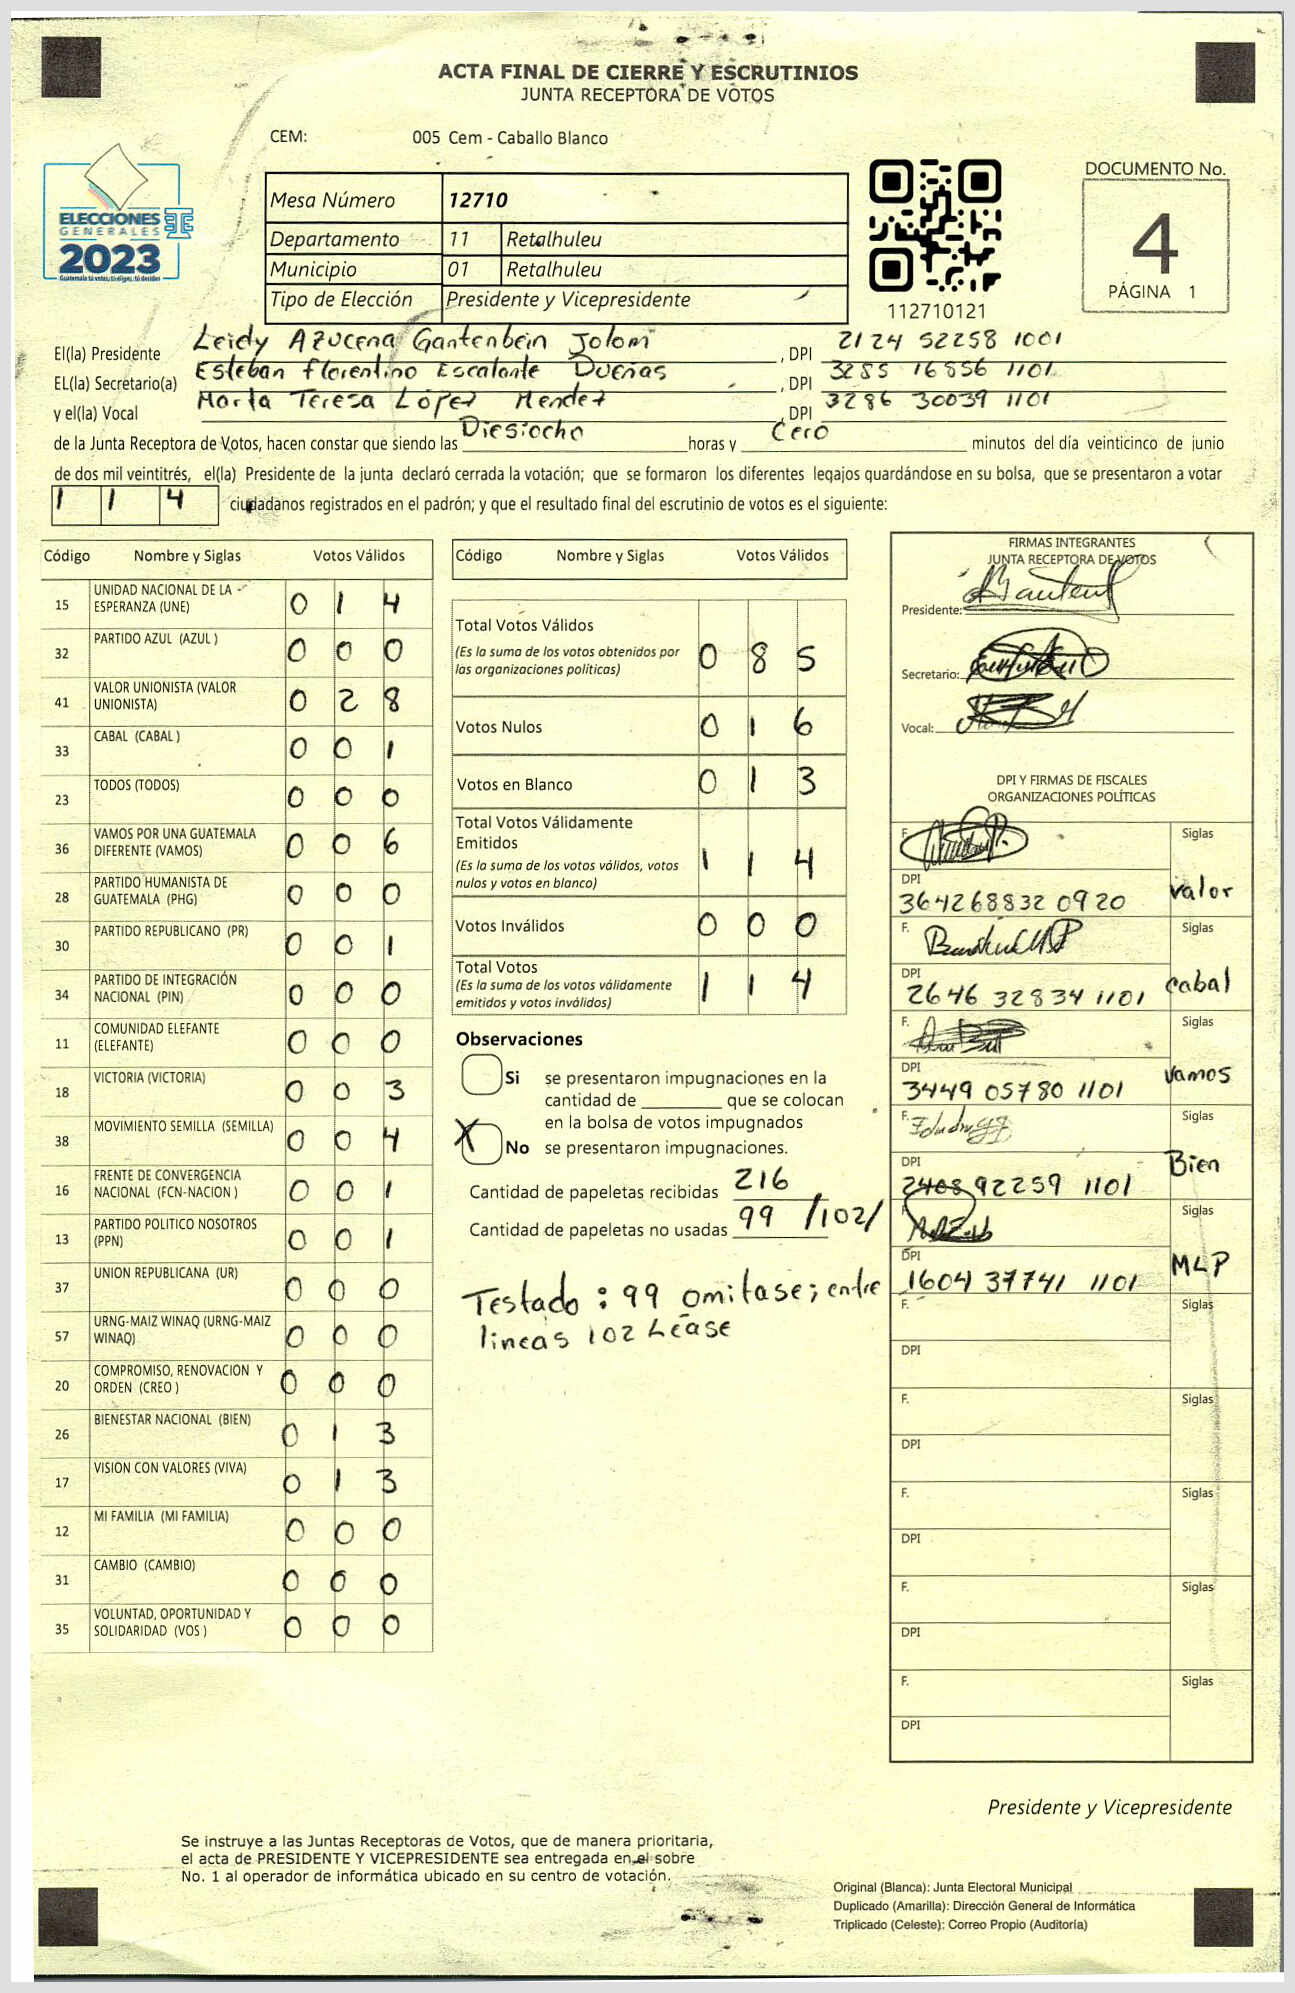 ACTA FINAL DE CIERRE Y ESCRUTINIOS
JUNTA RECEPTORA DE VOTOS
CEM: 005 Cem - Caballo Blanco
ELECCIONES
GENERALES
2023
Guatemala tú votas, tú eliges, tú decides
Mesa Número 12710
Departamento 11 Retalhuleu
Municipio 01 Retalhuleu
Tipo de Elección Presidente y Vicepresidente
112710121
DOCUMENTO No.
4
PÁGINA 1
El(la) Presidente Leidy Azucena Gantenbein Jolomi , DPI 2124 52258 1001
EL(la) Secretario(a) Esteban florentino Escalante Dueñas , DPI 3285 16856 1101
y el(la) Vocal Marta Teresa López Mendez , DPI 3286 30039 1101
de la Junta Receptora de Votos, hacen constar que siendo las Diesiocho horas y Cero minutos del día veinticinco de junio
de dos mil veintitrés, el(la) Presidente de la junta declaró cerrada la votación; que se formaron los diferentes legajos guardándose en su bolsa, que se presentaron a votar
1 1 4 ciudadanos registrados en el padrón; y que el resultado final del escrutinio de votos es el siguiente:
Código Nombre y Siglas Votos Válidos
15 UNIDAD NACIONAL DE LA ESPERANZA (UNE) 0 1 4
32 PARTIDO AZUL (AZUL ) 0 0 0
41 VALOR UNIONISTA (VALOR UNIONISTA) 0 2 8
33 CABAL (CABAL ) 0 0 1
23 TODOS (TODOS) 0 0 0
36 VAMOS POR UNA GUATEMALA DIFERENTE (VAMOS) 0 0 6
28 PARTIDO HUMANISTA DE GUATEMALA (PHG) 0 0 0
30 PARTIDO REPUBLICANO (PR) 0 0 1
34 PARTIDO DE INTEGRACIÓN NACIONAL (PIN) 0 0 0
11 COMUNIDAD ELEFANTE (ELEFANTE) 0 0 0
18 VICTORIA (VICTORIA) 0 0 3
38 MOVIMIENTO SEMILLA (SEMILLA) 0 0 4
16 FRENTE DE CONVERGENCIA NACIONAL (FCN-NACION ) 0 0 1
13 PARTIDO POLITICO NOSOTROS (PPN) 0 0 1
37 UNION REPUBLICANA (UR) 0 0 0
57 URNG-MAIZ WINAQ (URNG-MAIZ WINAQ) 0 0 0
20 COMPROMISO, RENOVACION Y ORDEN (CREO ) 0 0 0
26 BIENESTAR NACIONAL (BIEN) 0 1 3
17 VISION CON VALORES (VIVA) 0 1 3
12 MI FAMILIA (MI FAMILIA) 0 0 0
31 CAMBIO (CAMBIO) 0 0 0
35 VOLUNTAD, OPORTUNIDAD Y SOLIDARIDAD (VOS ) 0 0 0
Código Nombre y Siglas Votos Válidos
Total Votos Válidos
(Es la suma de los votos obtenidos por
las organizaciones políticas) 0 8 5
Votos Nulos 0 1 6
Votos en Blanco 0 1 3
Total Votos Válidamente
Emitidos
(Es la suma de los votos válidos, votos
nulos y votos en blanco) 1 1 4
Votos Inválidos 0 0 0
Total Votos
(Es la suma de los votos válidamente
emitidos y votos inválidos) 1 1 4
Observaciones
Si se presentaron impugnaciones en la
cantidad de ________ que se colocan
en la bolsa de votos impugnados
X No se presentaron impugnaciones.
Cantidad de papeletas recibidas 216
Cantidad de papeletas no usadas 99 /102/
Testado: 99 omitase; entre
lineas 102 Lease
FIRMAS INTEGRANTES
JUNTA RECEPTORA DE VOTOS
Presidente:
Secretario:
Vocal:
DPI Y FIRMAS DE FISCALES
ORGANIZACIONES POLÍTICAS
F. Siglas
DPI 364268832 0920 valor
F. Siglas
DPI 2646 32834 1101 cabal
F. Siglas
DPI 3449 05780 1101 vamos
F. Siglas
DPI 2408 92259 1101 Bien
F. Siglas
DPI 1604 37741 1101 MLP
F. Siglas
DPI
F. Siglas
DPI
F. Siglas
DPI
F. Siglas
DPI
F. Siglas
DPI
Presidente y Vicepresidente
Se instruye a las Juntas Receptoras de Votos, que de manera prioritaria,
el acta de PRESIDENTE Y VICEPRESIDENTE sea entregada en el sobre
No. 1 al operador de informática ubicado en su centro de votación.
Original (Blanca): Junta Electoral Municipal
Duplicado (Amarilla): Dirección General de Informática
Triplicado (Celeste): Correo Propio (Auditoría)